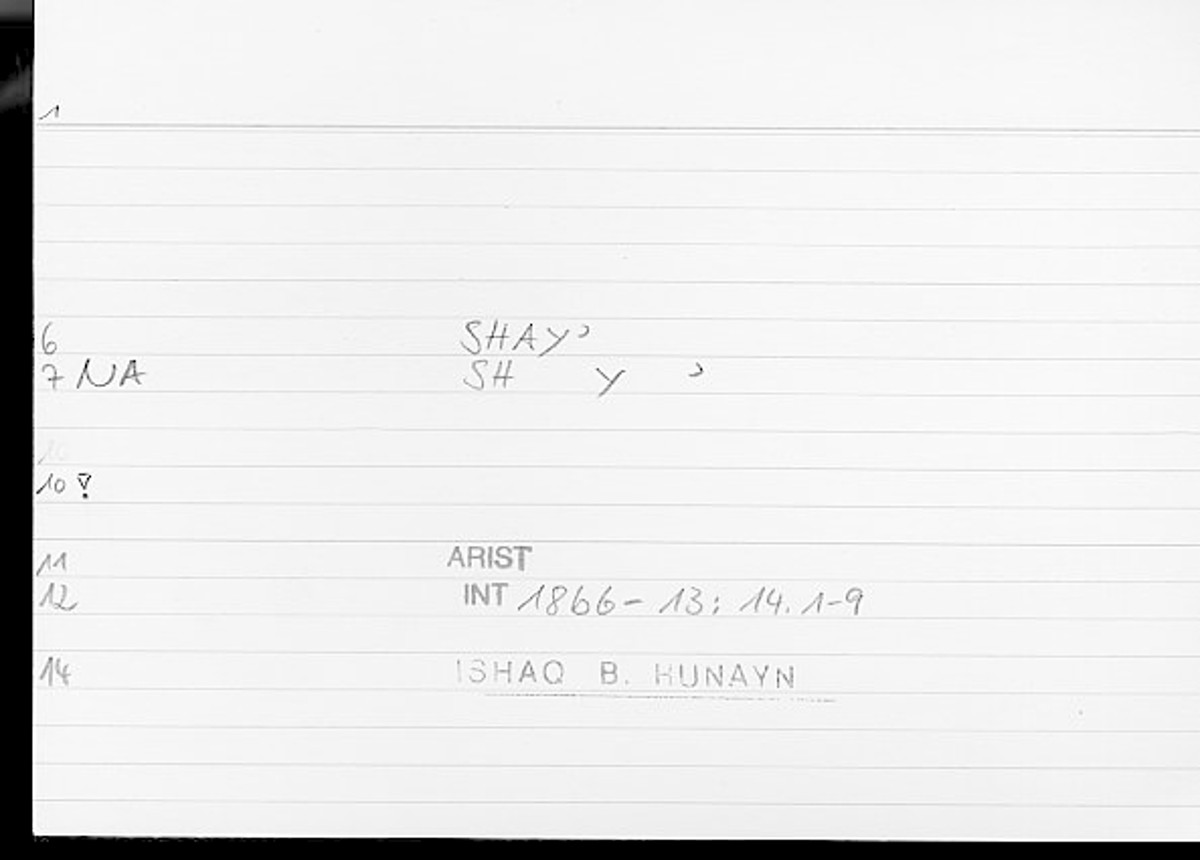 1
6 SHAY'
7 NA SH Y '
10
10 !
11 ARIST
12 INT 1866-13; 14.1-9
14 ISHAQ B. HUNAYN